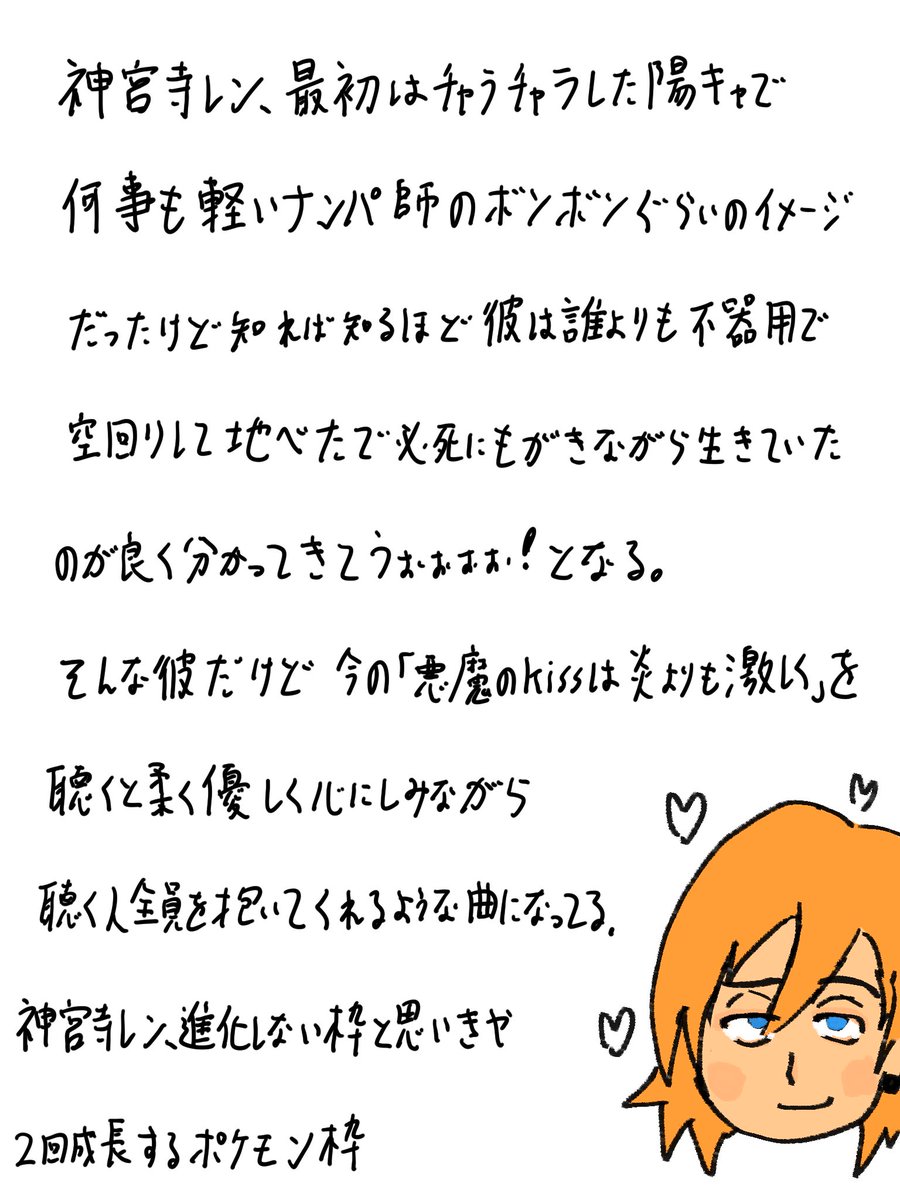 神宮寺レン、最初はチャラチャラした陽キャで
何事も軽いナンパ師のボンボンぐらいのイメージ
だったけど知れば知るほど彼は誰よりも不器用で
空回りして地べたで必死にもがきながら生きていた
のが良く分かってきてうぉぉぉぉ!となる。
そんな彼だけど今の「悪魔のkissは炎よりも激しく」を
聴くと柔く優しく心にしみながら
聴く人全員を抱いてくれるような曲になってる.
神宮寺レン、進化しない枠と思いきや
2回成長するポケモン枠